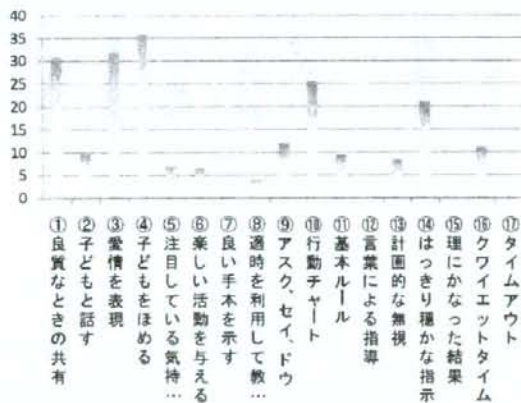 40
35
30
25
20
15
10
5
0
①良質なときの共有
②子どもと話す
③愛情を表現
④子どもをほめる
⑤注目している気持…
⑥楽しい活動を与える
⑦良い手本を示す
⑧適時を利用して教…
⑨アスク、セイ、ドウ
⑩行動チャート
⑪基本ルール
⑫言葉による指導
⑬計画的な無視
⑭はっきり穏かな指示
⑮理にかなった結果
⑯クワイエットタイム
⑰タイムアウト